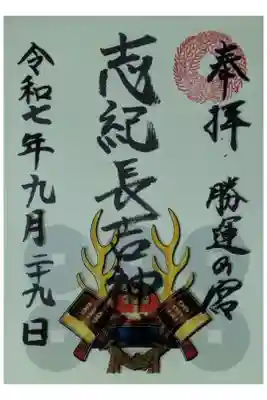 奉拝
勝運の宮
志紀長吉神
令和七年九月二十九日